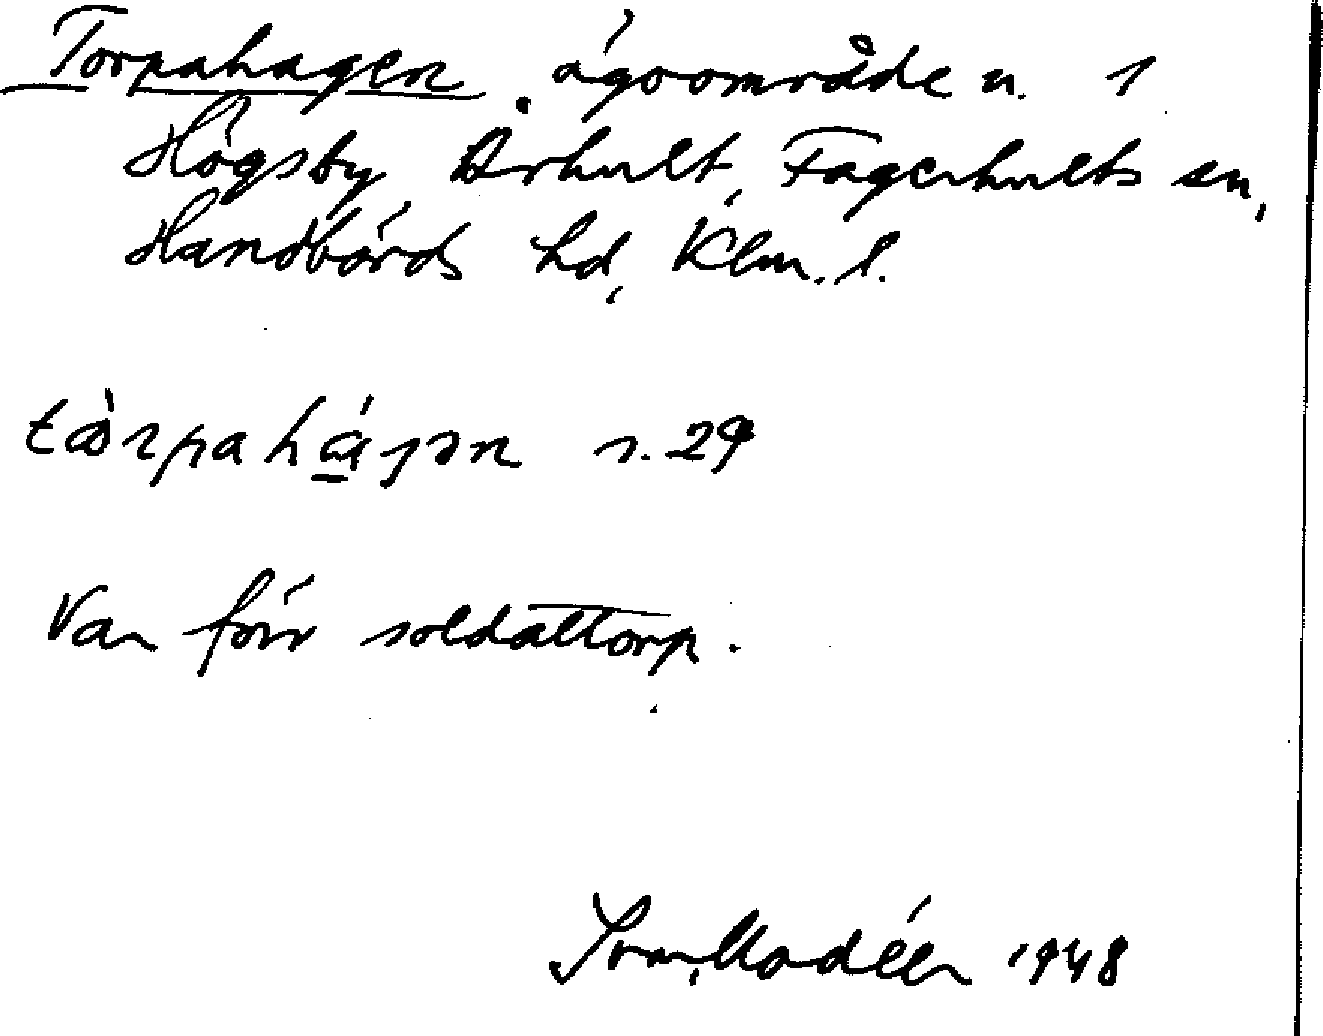 Torpahagen, ägoområde u. 1
Högsby Århult, Fagerhults sn,
Handbörds hd, Klm. l.
s. 29
Var förr soldattorp.
Ivar Modéer 1948